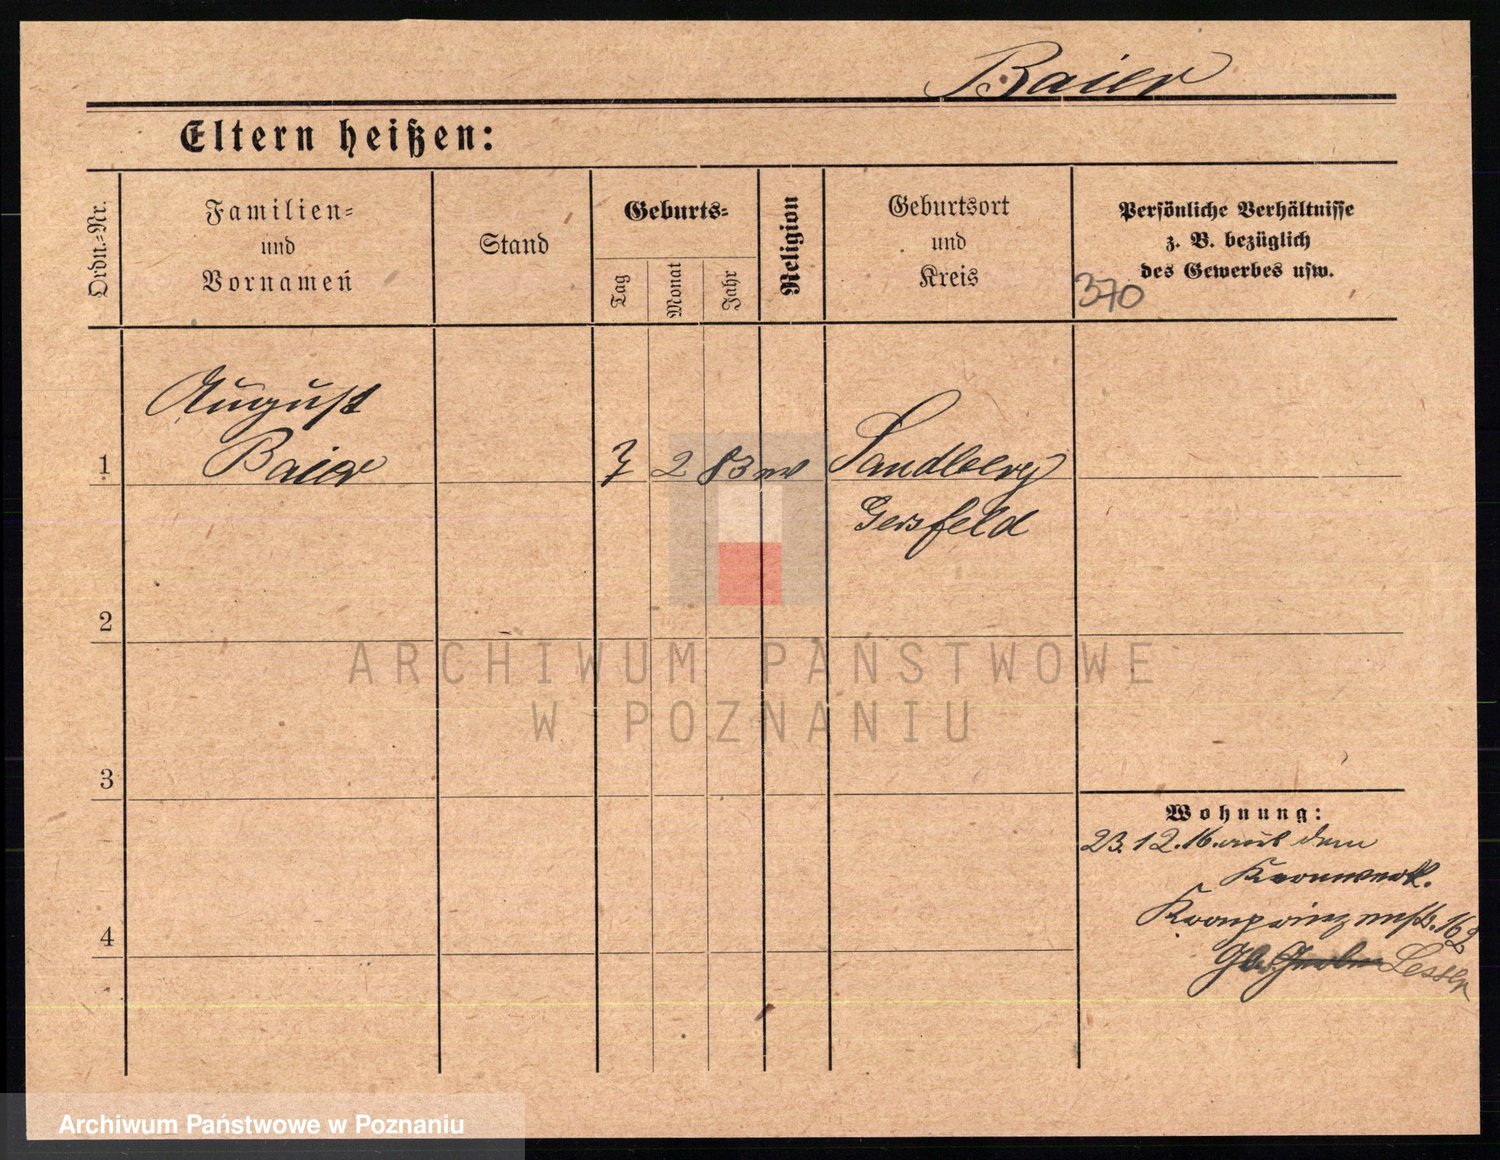 Baier
Eltern heißen:
Ordn.=Nr.
Familien=
und
Vornamen
Stand
Geburts=
Tag
Monat
Jahr
Religion
Geburtsort
und
Kreis
Persönliche Verhältnisse
z. B. bezüglich
des Gewerbes usw.
370
August
1 Baier 7 2 83 Sandberg
Gersfeld
2
ARCHIWUM PAŃSTWOWE
W POZNANIU
3
Wohnung:
23.12.16. aus dem
Kernwerk.
4 Kronprinzenstr. 162
Lesser
Archiwum Państwowe w Poznaniu